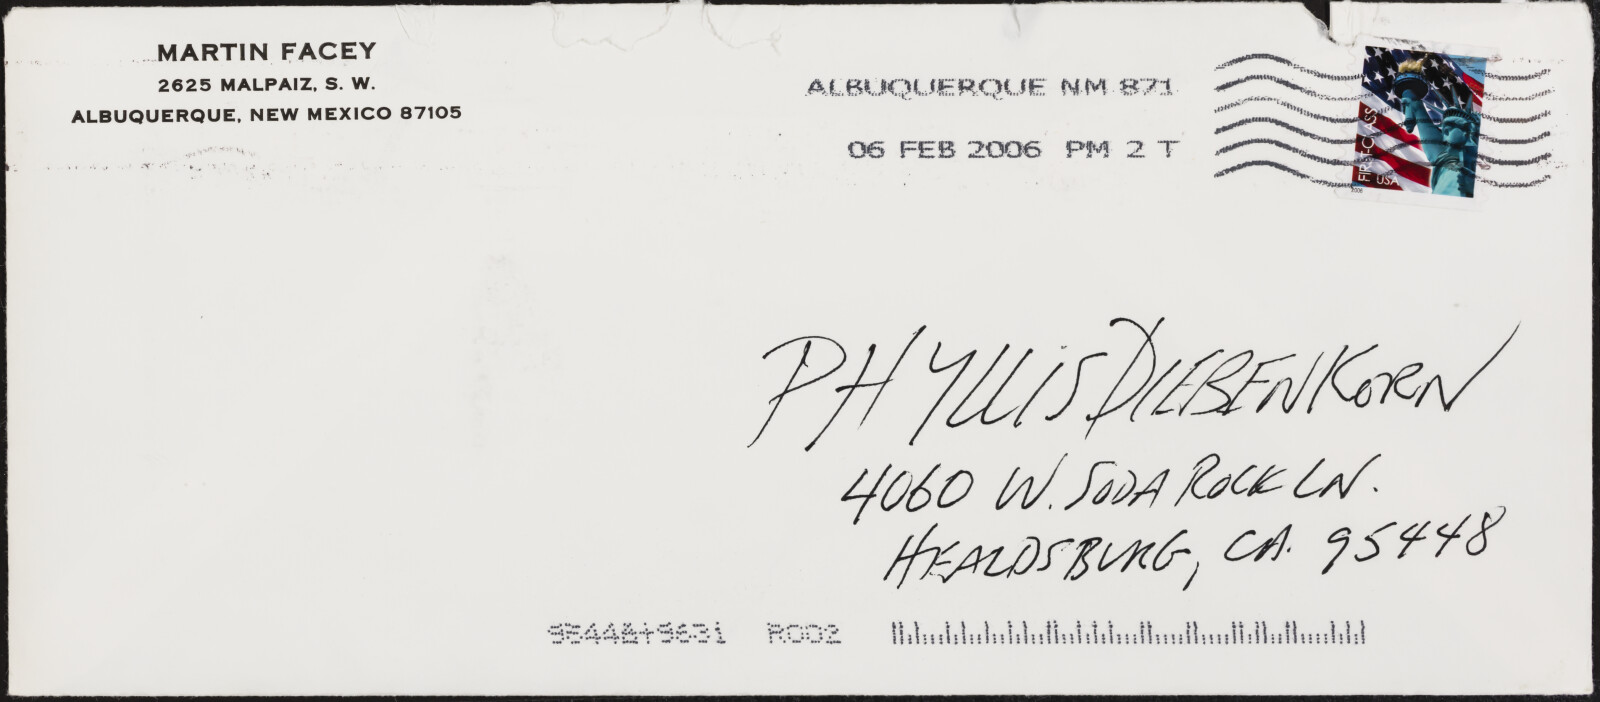 MARTIN FACEY
2625 MALPAIZ, S. W.
ALBUQUERQUE, NEW MEXICO 87105
ALBUQUERQUE NM 871
06 FEB 2006 PM 2 T
FIRST-CLASS
USA
PHYLLIS DIEBENKORN
4060 W. SODA ROCK LN.
HEALDSBURG, CA. 95448
95448+9631 R002